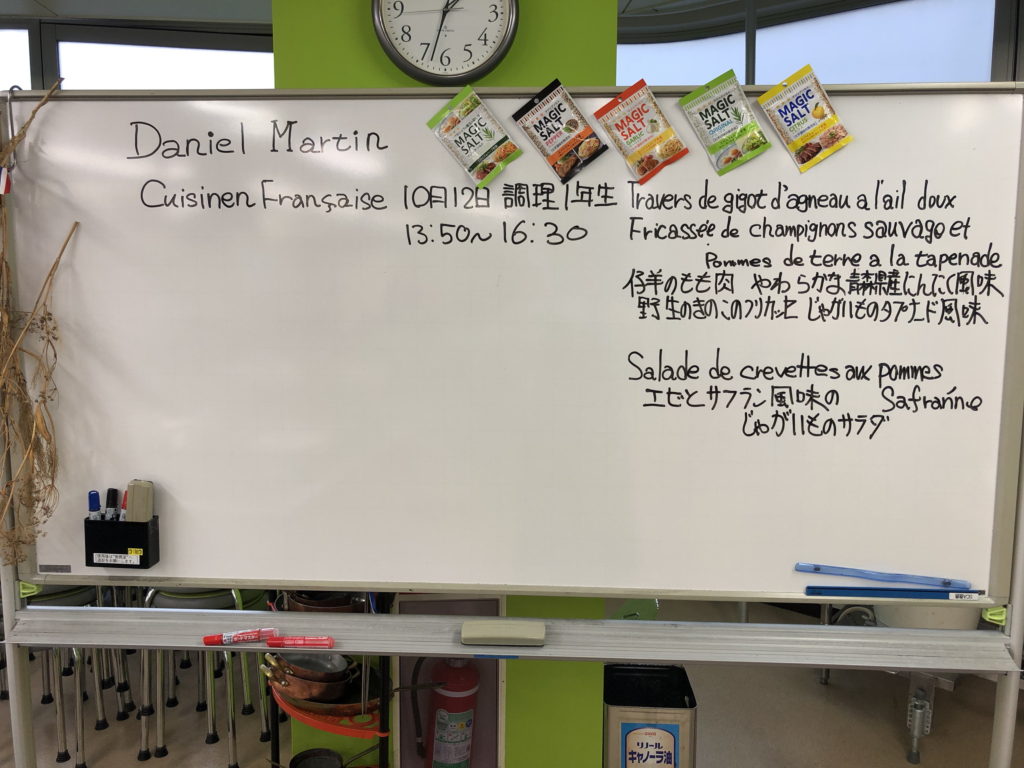 Daniel Martin
Cuisinen Française 10月12日 調理1年生
13:50〜16:30
Travers de gigot d'agneau a l'ail doux
Fricassée de champignons sauvage et
Pommes de terre a la tapenade
仔羊のもも肉 やわらかな青森県産にんにく風味
野生のきのこのフリカッセ じゃがいものタプナード風味
Salade de crevettes aux pommes
エビとサフラン風味の Safranne
じゃがいものサラダ
MAGIC SALT
MAGIC SALT PEPPER
MAGIC SALT GARLIC
MAGIC SALT
MAGIC SALT CITRUS
9 8 7 6 5 4 3
リノール
キャノーラ油